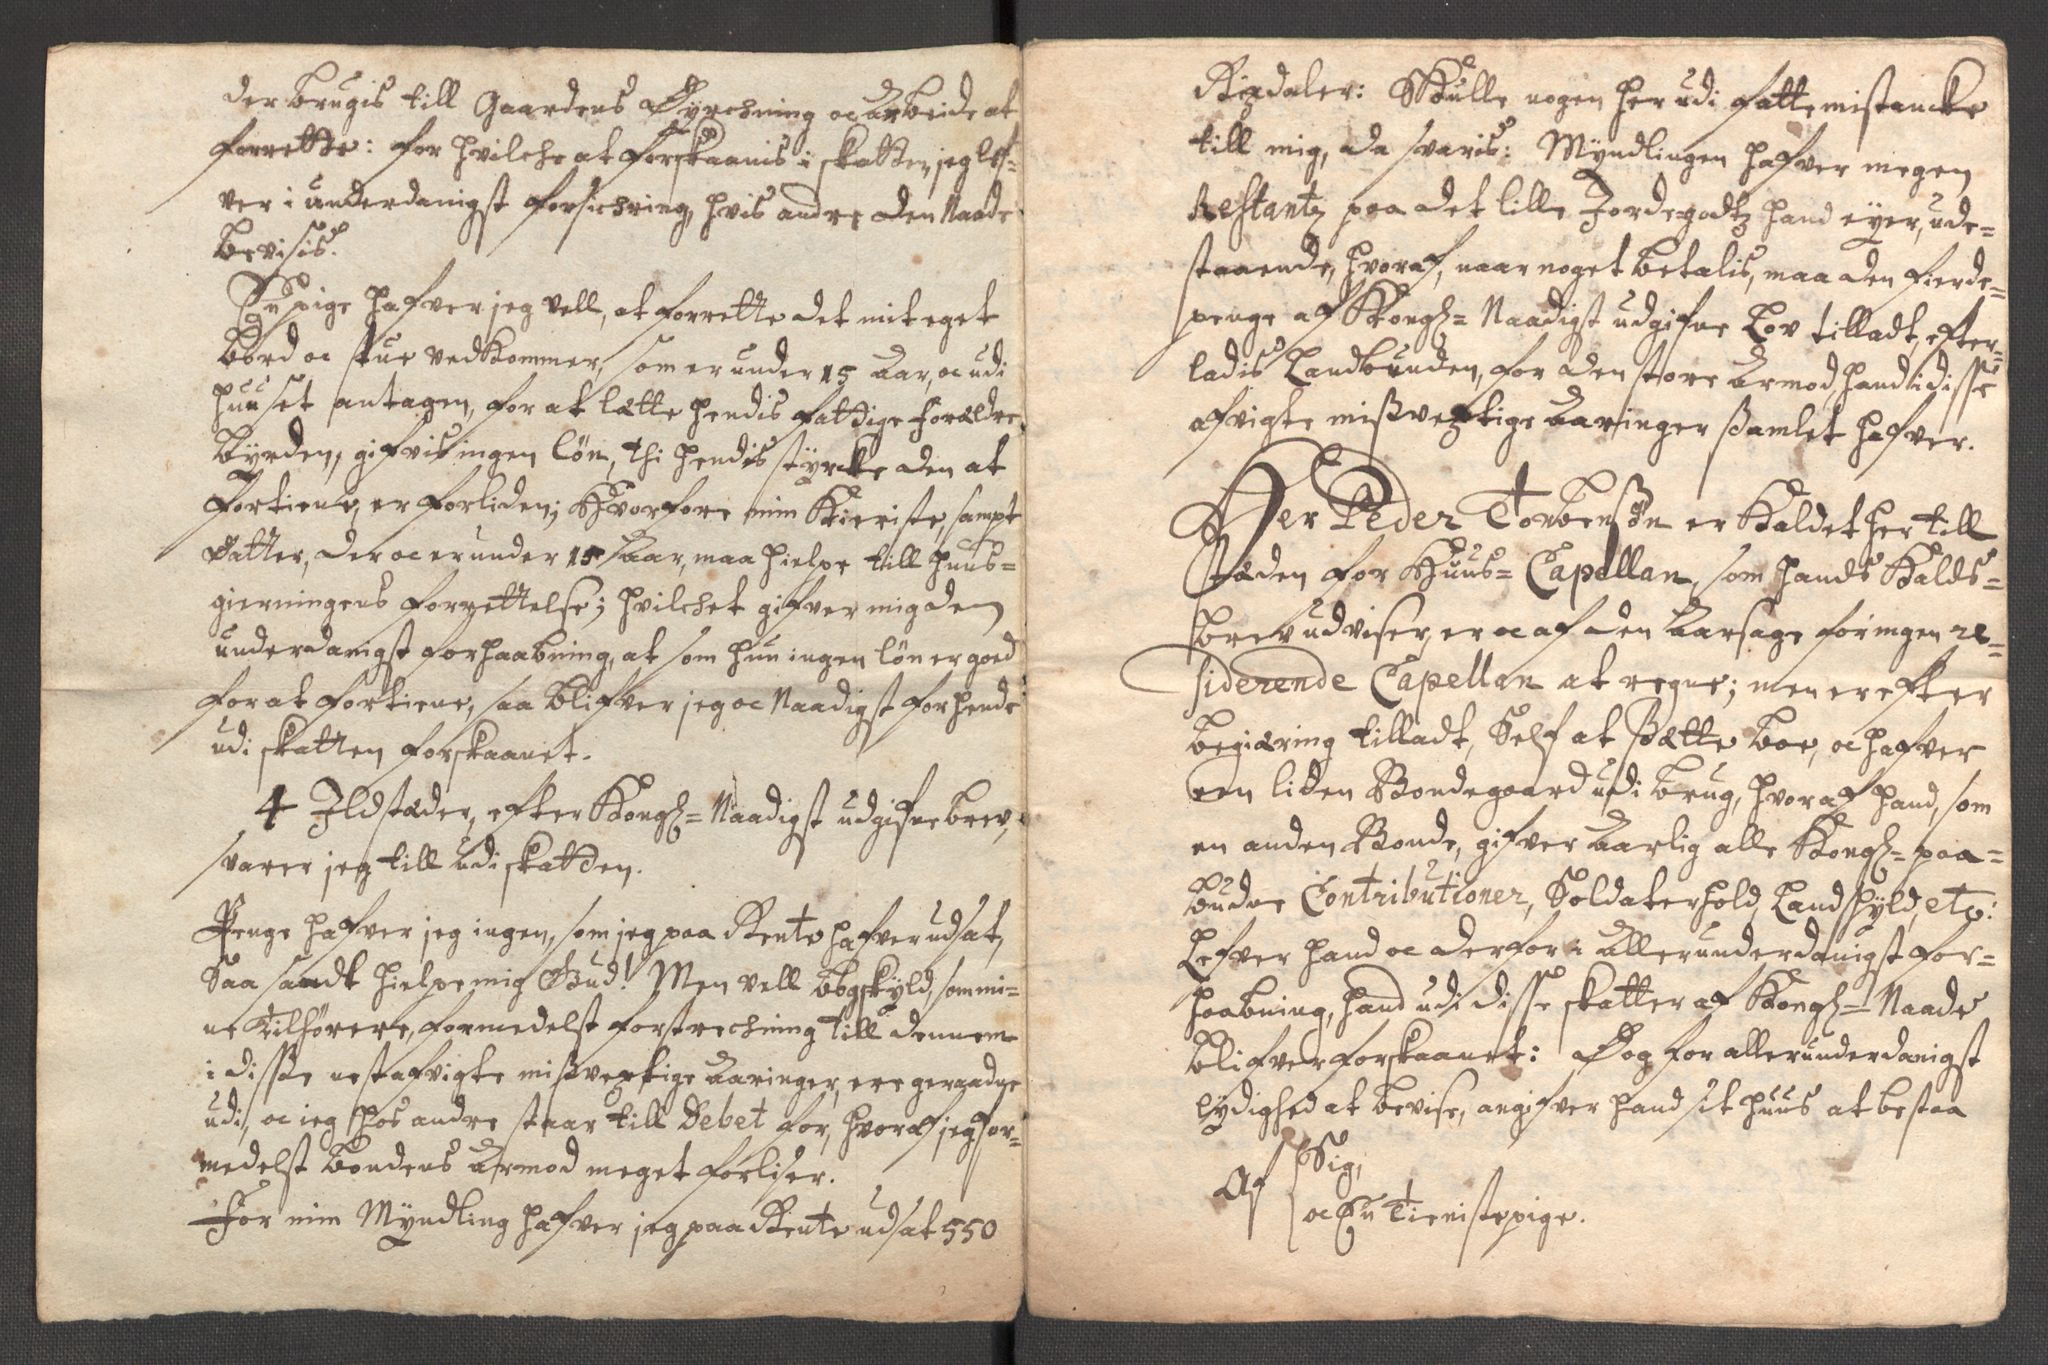 der brugis till Gaardens Dÿrchning oc arbeide at
forrette: for hvilche at forskaanis i skatten, jeg lef-
ver i underdanigst forsichring, hvis andre den Naade
bevisis.
En pige hafver jeg vell, at forrette det mit eget
bord oc stue vedkommer, som er under 15 Aar, oc udi
huuset antagen, for at lætte hendis fattige forældre
bÿrden, gifvis ingen løn, thi hendis stÿrcke den at
fortiene, er forliden; Hvorfore min Kieriste, sampt
datter, der oc er under 15 Aar, maa hielpe till huus-
gierningens forrettelse; hvilchet gifver mig den
underdanigst forhaabning, at som hun ingen løn er goed
for at fortiene, saa blifver jeg oc Naadigst for hende
udi skatten forskaanet.
4 Ildstæder, efter Kongl= Naadigst udgifne brev,
svarer jeg till udi skatten.
Penge hafver jeg ingen, som jeg paa Rente hafver udsat,
Saa sandt hielpe mig Gud! Men vell bogskÿld, som mi-
ne Tilhørere, formedelst forstrechning till dennem
i disse nest afvigte misvextige Aaringer, ere geraadne
udi, oc ieg hos andre staar till Debet for, hvoraf jeg for-
medelst bondens Armod meget forliser.
For min Mÿndling hafver jeg paa Rente udsat 550
Rixdaler: Skulle nogen her udi fatte mistancke
till mig, da svaris: Mÿndlingen hafver megen
Restantz paa det lille Jordegodtz hand eÿer, ude-
staaende, hvoraf, naar noget betalis, maa den fierde-
penge af Kongl= Naadigst udgifne Lov tilladt, efter-
ladis Landbunden, for den store Armod, hand i disse
afvigte misvextige Aaringer samlet hafver.
Her Peder Torbensøn er Kaldet her till
stæden for Huus= Capellan, som hands Kalds-
brev udviser, er oc af den Aarsage for ingen re-
siderende Capellan at regne; men er efter
begiæring tilladt, Self at sætte boe, oc hafver
een liden Bondegaard udi brug, hvoraf hand, som
en anden Bonde, gifver Aarlig alle Kongl= paa-
budne Contributioner, Soldaterhold, Landskÿld, etc:
Lefver hand oc derfor i Allerunderdanigst for-
haabning, hand udi disse skatter af Kongl= Naade
blifver forskaanet: Dog for allerunderdanigst
lÿdighed at bevise, angifver hand sit huus at bestaa
Af Sig,
oc En Tienistepige.